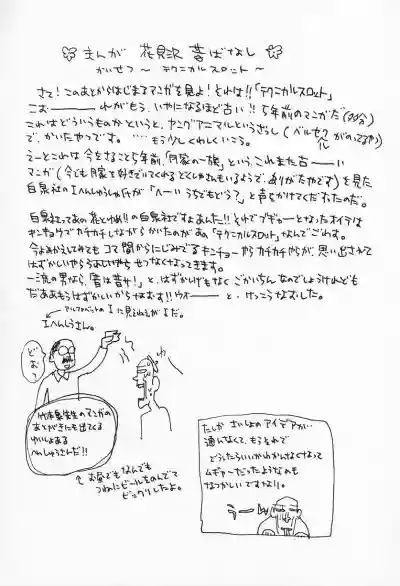 まんが 花見沢 昔ばなし
かいせつ ~ テクニカルスロット ~
さて!このあとからはじまるマンガを見よ!それは!!「テクニカルスロット」
これがもう、いやになるほど古い!!5年前のマンガだ(200分)
これはどういうものかというと、ヤングアニマルというざっし(ベルセルクがのってるやつ)
で、かいたやつです。……もう少しくわしくいこう。
えーとこれは今をさること5年前、「月家の一族」という、これまた古――い
マンガ(今でも腹を好きでいてくれるとくしゃさんもいるようで、ありがたやです)を見た
白泉社のIへんしゅうしゃ氏が「へーいうちでもどう?」と声をかけてくださったのだ。
白泉社ってあの花とゆめ!!の白泉社ですよあんた!!それでブギューとなったオイラは
キンチョウでカチカチしながらかいたのがあ、「テクニカルスロット」なんでごわす。
今よみかえしてみても コマ間からにじみでるキンチョーやらカチカチやらが、思い出されて
はずかしいやらうれしいやらせつなくなってきます。
一流の男なら、「昔は昔サ!」と、はずかしげもなく ごかいちん なのでしょうけれども
だああもうはずかしいからほおむす!!ウオ―― と、けっこうなおした。
アルファベットのIに見えねえがIだ。
Iへんしゅうさん。
どお?
竹本泉先生のマンガの
あとがきにも出てくる
ゆいしょある
へんしゅうさんだ!!
↑ お昼でもなんでも
つねにビールものんでて
ビックリしたよ。
たしか さいしょのアイデアが…
通んなくて、もうそれで
どうしたらいいかわかんなくなって
ムギャーだったようなのも
なつかしいですなり。
うー